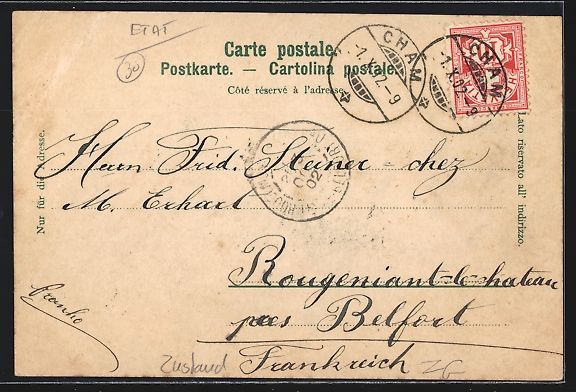 ETAT
30
Carte postale.
Postkarte. — Cartolina postale.
Côté réservé à l'adresse.
CHAM
-1.X.02.-9
CHAM
-1.X.02.-9
Nur für die Adresse.
Lato riservato all' indirizzo.
Herrn Frid. Steiner - chez
M. Erhart
02
Rougeniant-le-chateau
pres Belfort
Frankreich
Franko
Zustand
ZG